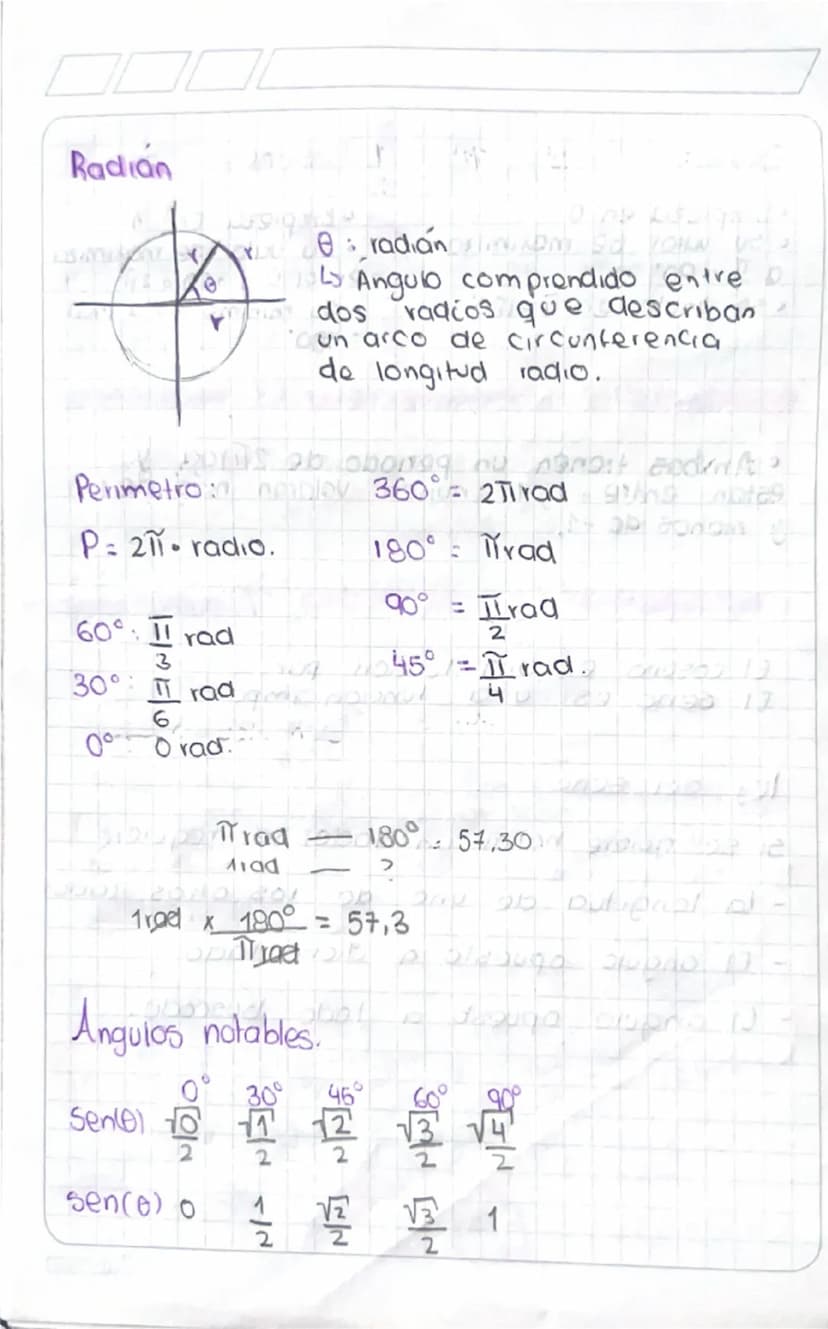 Radián
r r
θ
r
θ : radián
↳ Ángulo comprendido entre
dos radios que describan
un arco de circunferencia
de longitud radio.
Perimetro: 360° = 2π rad
P = 2π • radio. 180° = π rad
90° = π/2 rad
60° : π/3 rad
45° = π/4 rad.
30° : π/6 rad
0° 0 rad.
π rad — 180° = 57,30
1 rad — ?
1 rad x 180°/π rad = 57,3
Angulos notables.
0° 30° 45° 60° 90°
Sen(θ) √0/2 √1/2 √2/2 √3/2 √4/2
sen(θ) 0 1/2 √2/2 √3/2 1